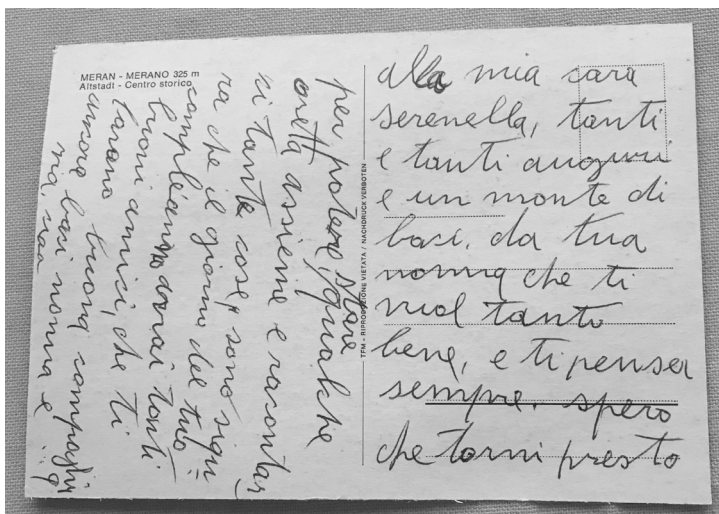 MERAN - MERANO 325 m
Altstadt - Centro storico
TFM - RIPRODUZIONE VIETATA / NACHDRUCK VERBOTEN
alla mia cara
serenella, tanti
e tanti auguri
e un monte di
baci, da tua
nonna che ti
vuol tanto
bene, e ti penser
sempre. spero
che torni presto
per potere stare qualche
oretta assieme e racontar
ci tante cose, sono sigu
ra che il giorno del tuo
compleanno avrai tanti
buoni amici, che ti
farano buona
ancora baci nonna e